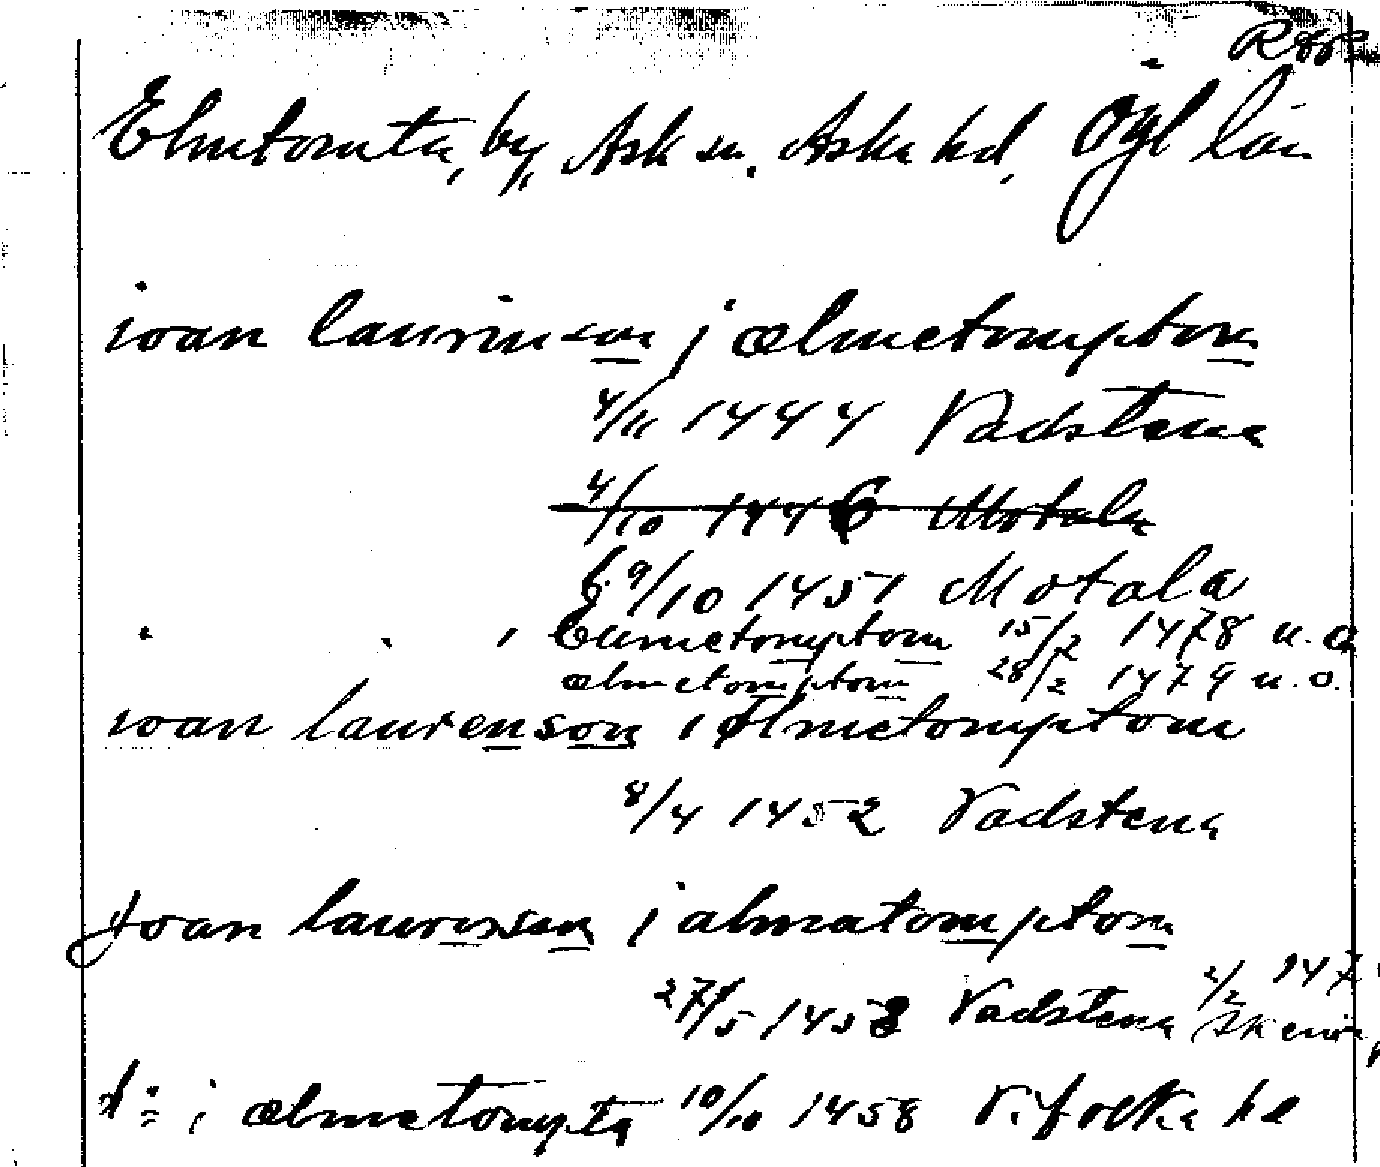 Elmtomta, by, Ask sn, Aska hd, Ögl län
ioan laurinson j ælmetomptom
4/11 1444 Vadstena
4/10 1446 Motala
9/10 1451 Motala
i Elimetomptom 15/2 1478 u. o
ælmetomptom 28/2 1479 u. o.
ioan laurenson i ælmetomptom
8/4 1452 Vadstena
Joan laurensson j almatomptom
2/2 147
27/5 1453 Vadstena
d: i ælmetompta 10/10 1458 Vifolka hd